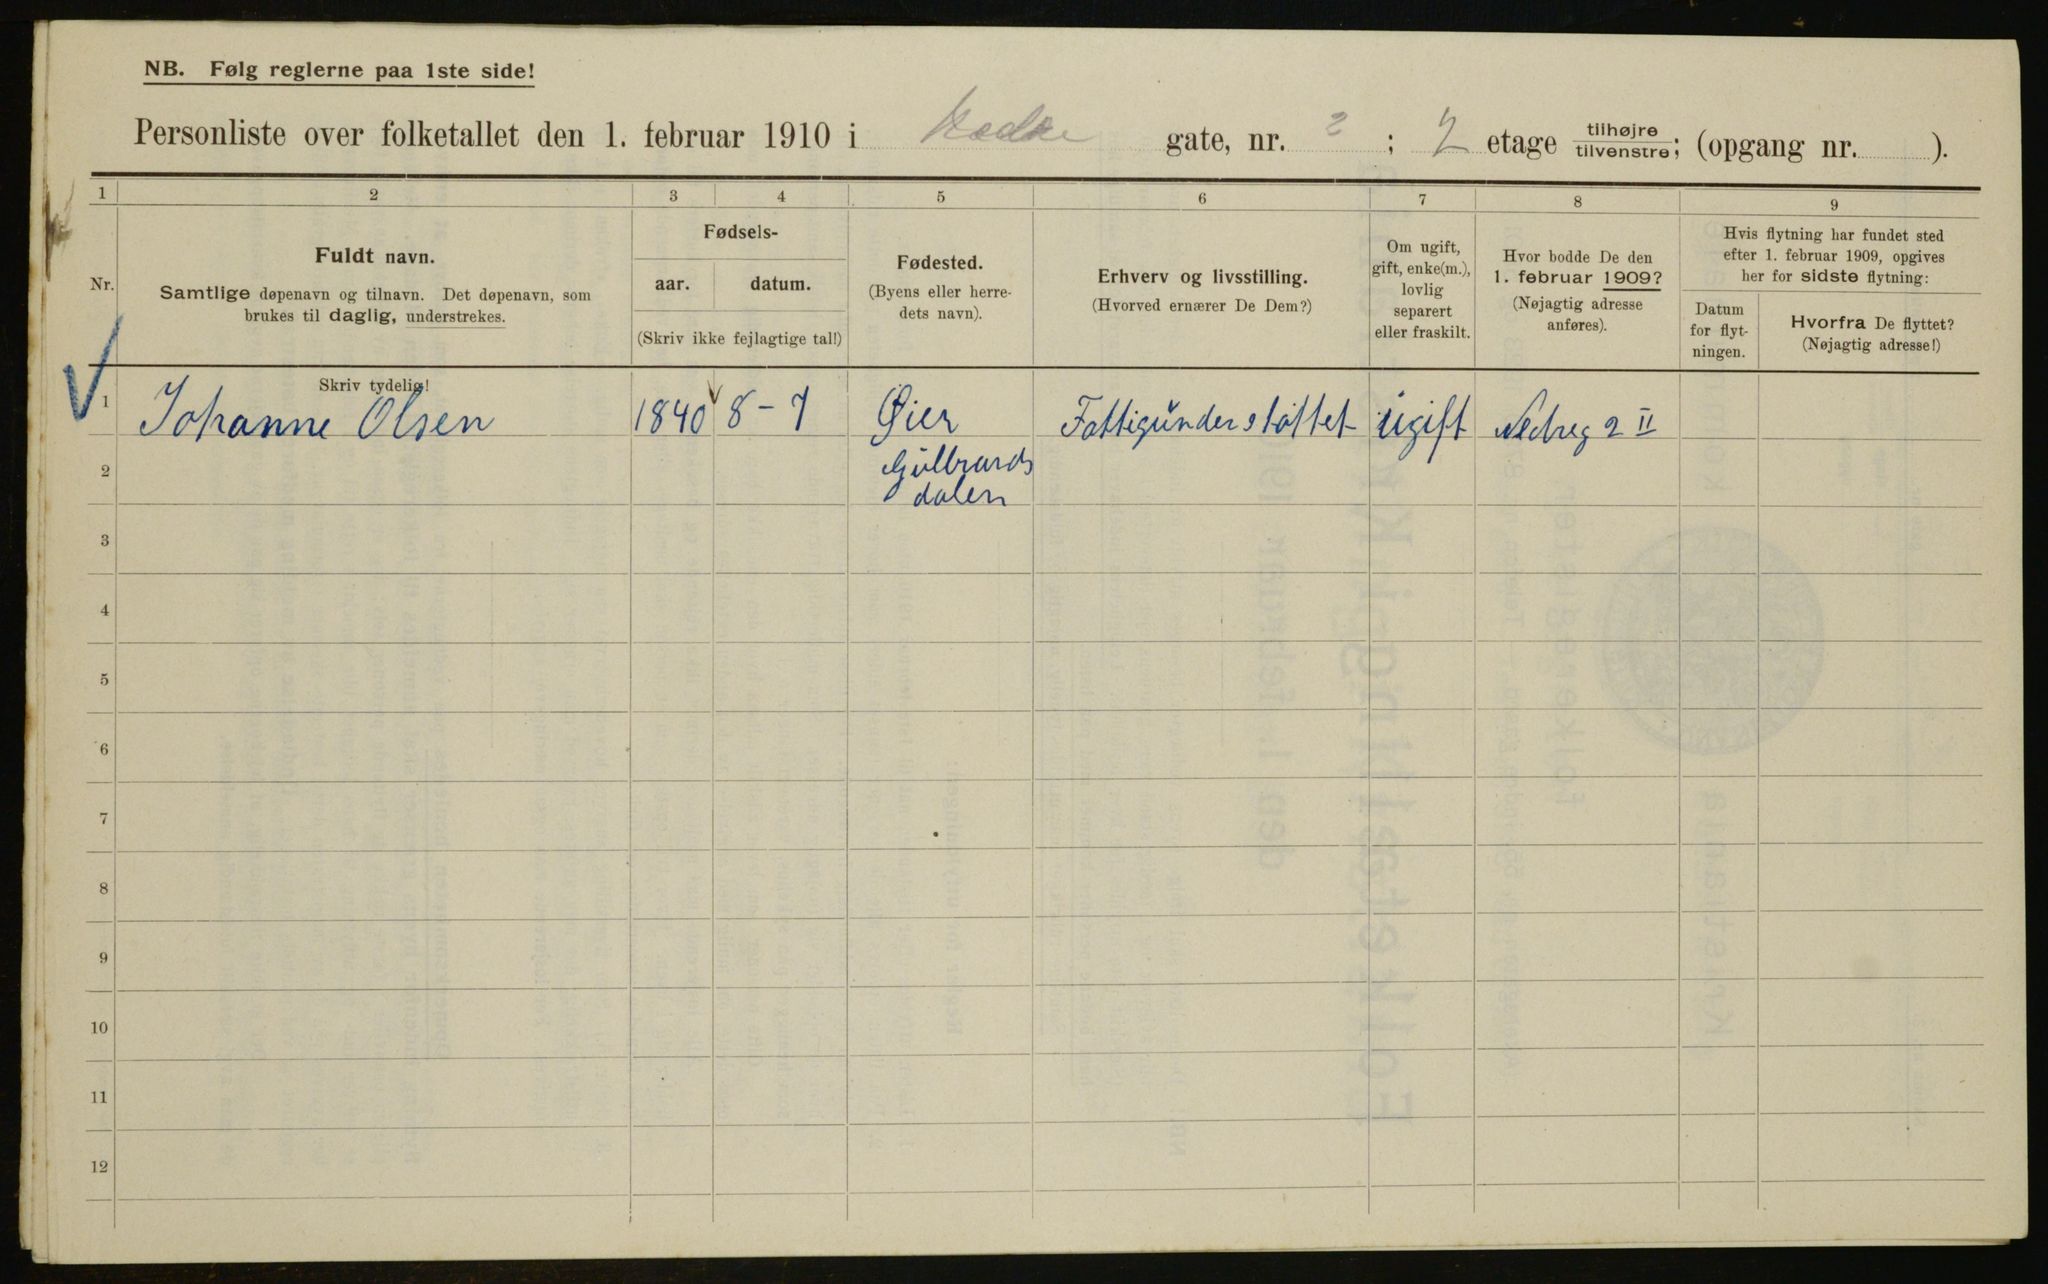 NB. Følg reglerne paa 1ste side!
Personliste over folketallet den 1. februar 1910 i Nedre gate, nr. 2 ; 2 etage tilhøjre/tilvenstre; (opgang nr. ).
1 2 3 4 5 6 7 8 9
Nr.
Fuldt navn.
Samtlige døpenavn og tilnavn. Det døpenavn, som
brukes til daglig, understrekes.
Fødsels-
aar. datum.
(Skriv ikke fejlagtige tal!)
Fødested.
(Byens eller herre-
dets navn).
Erhverv og livsstilling.
(Hvorved ernærer De Dem?)
Om ugift,
gift, enke(m.),
lovlig
separert
eller fraskilt.
Hvor bodde De den
1. februar 1909?
(Nøjagtig adresse
anføres).
Hvis flytning har fundet sted
efter 1. februar 1909, opgives
her for sidste flytning:
Datum
for flyt-
ningen.
Hvorfra De flyttet?
(Nøjagtig adresse!)
Skriv tydelig!
1 Johanne Olsen 1840 8-7 Øier Fattigunderstøttet ugift Nedreg 2 II
2 Gulbrands
dalen
3
4
5
6
7
8
9
10
11
12